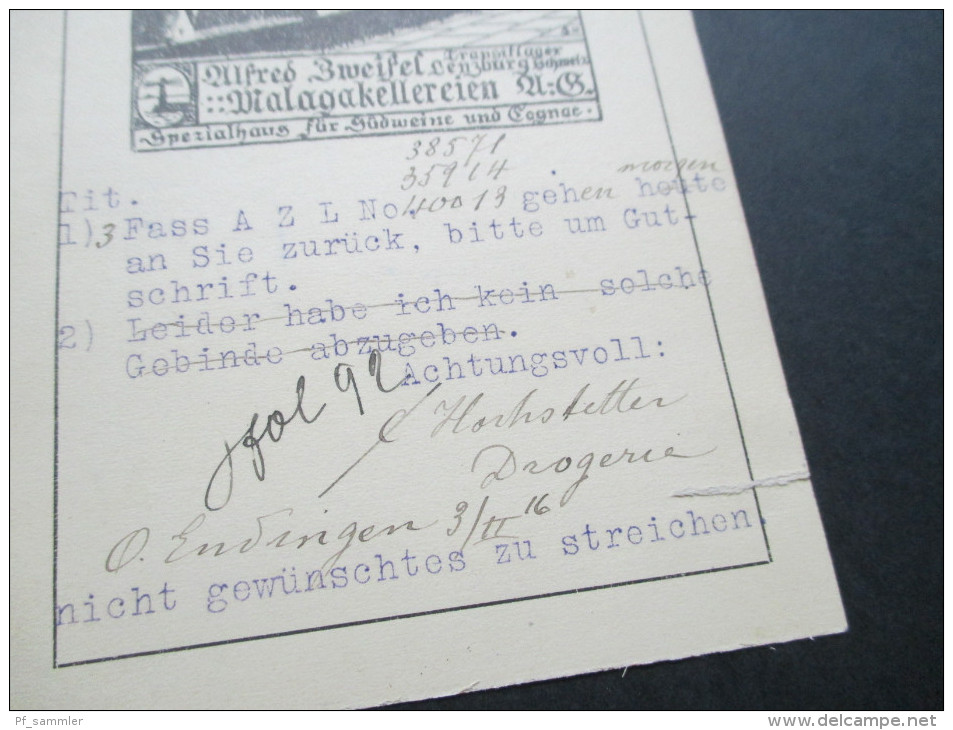 Alfred Zweifel Lenzburg Schweiz
Transitlager
::Malagakellereien A:G.
Spezialhaus für Südweine und Cognac.
38571
35914
Tit.
morgen
1) 3 Fass A Z L No. 40013 gehen heute
an Sie zurück, bitte um Gut-
schrift.
2) Leider habe ich kein solche
Gebinde abzugeben.
Achtungsvoll:
fol 92
Hochstetter
Drogerie
O. Endingen 3/II 16
nicht gewünschtes zu streichen.
Pf_sammler
www.delcampe.net